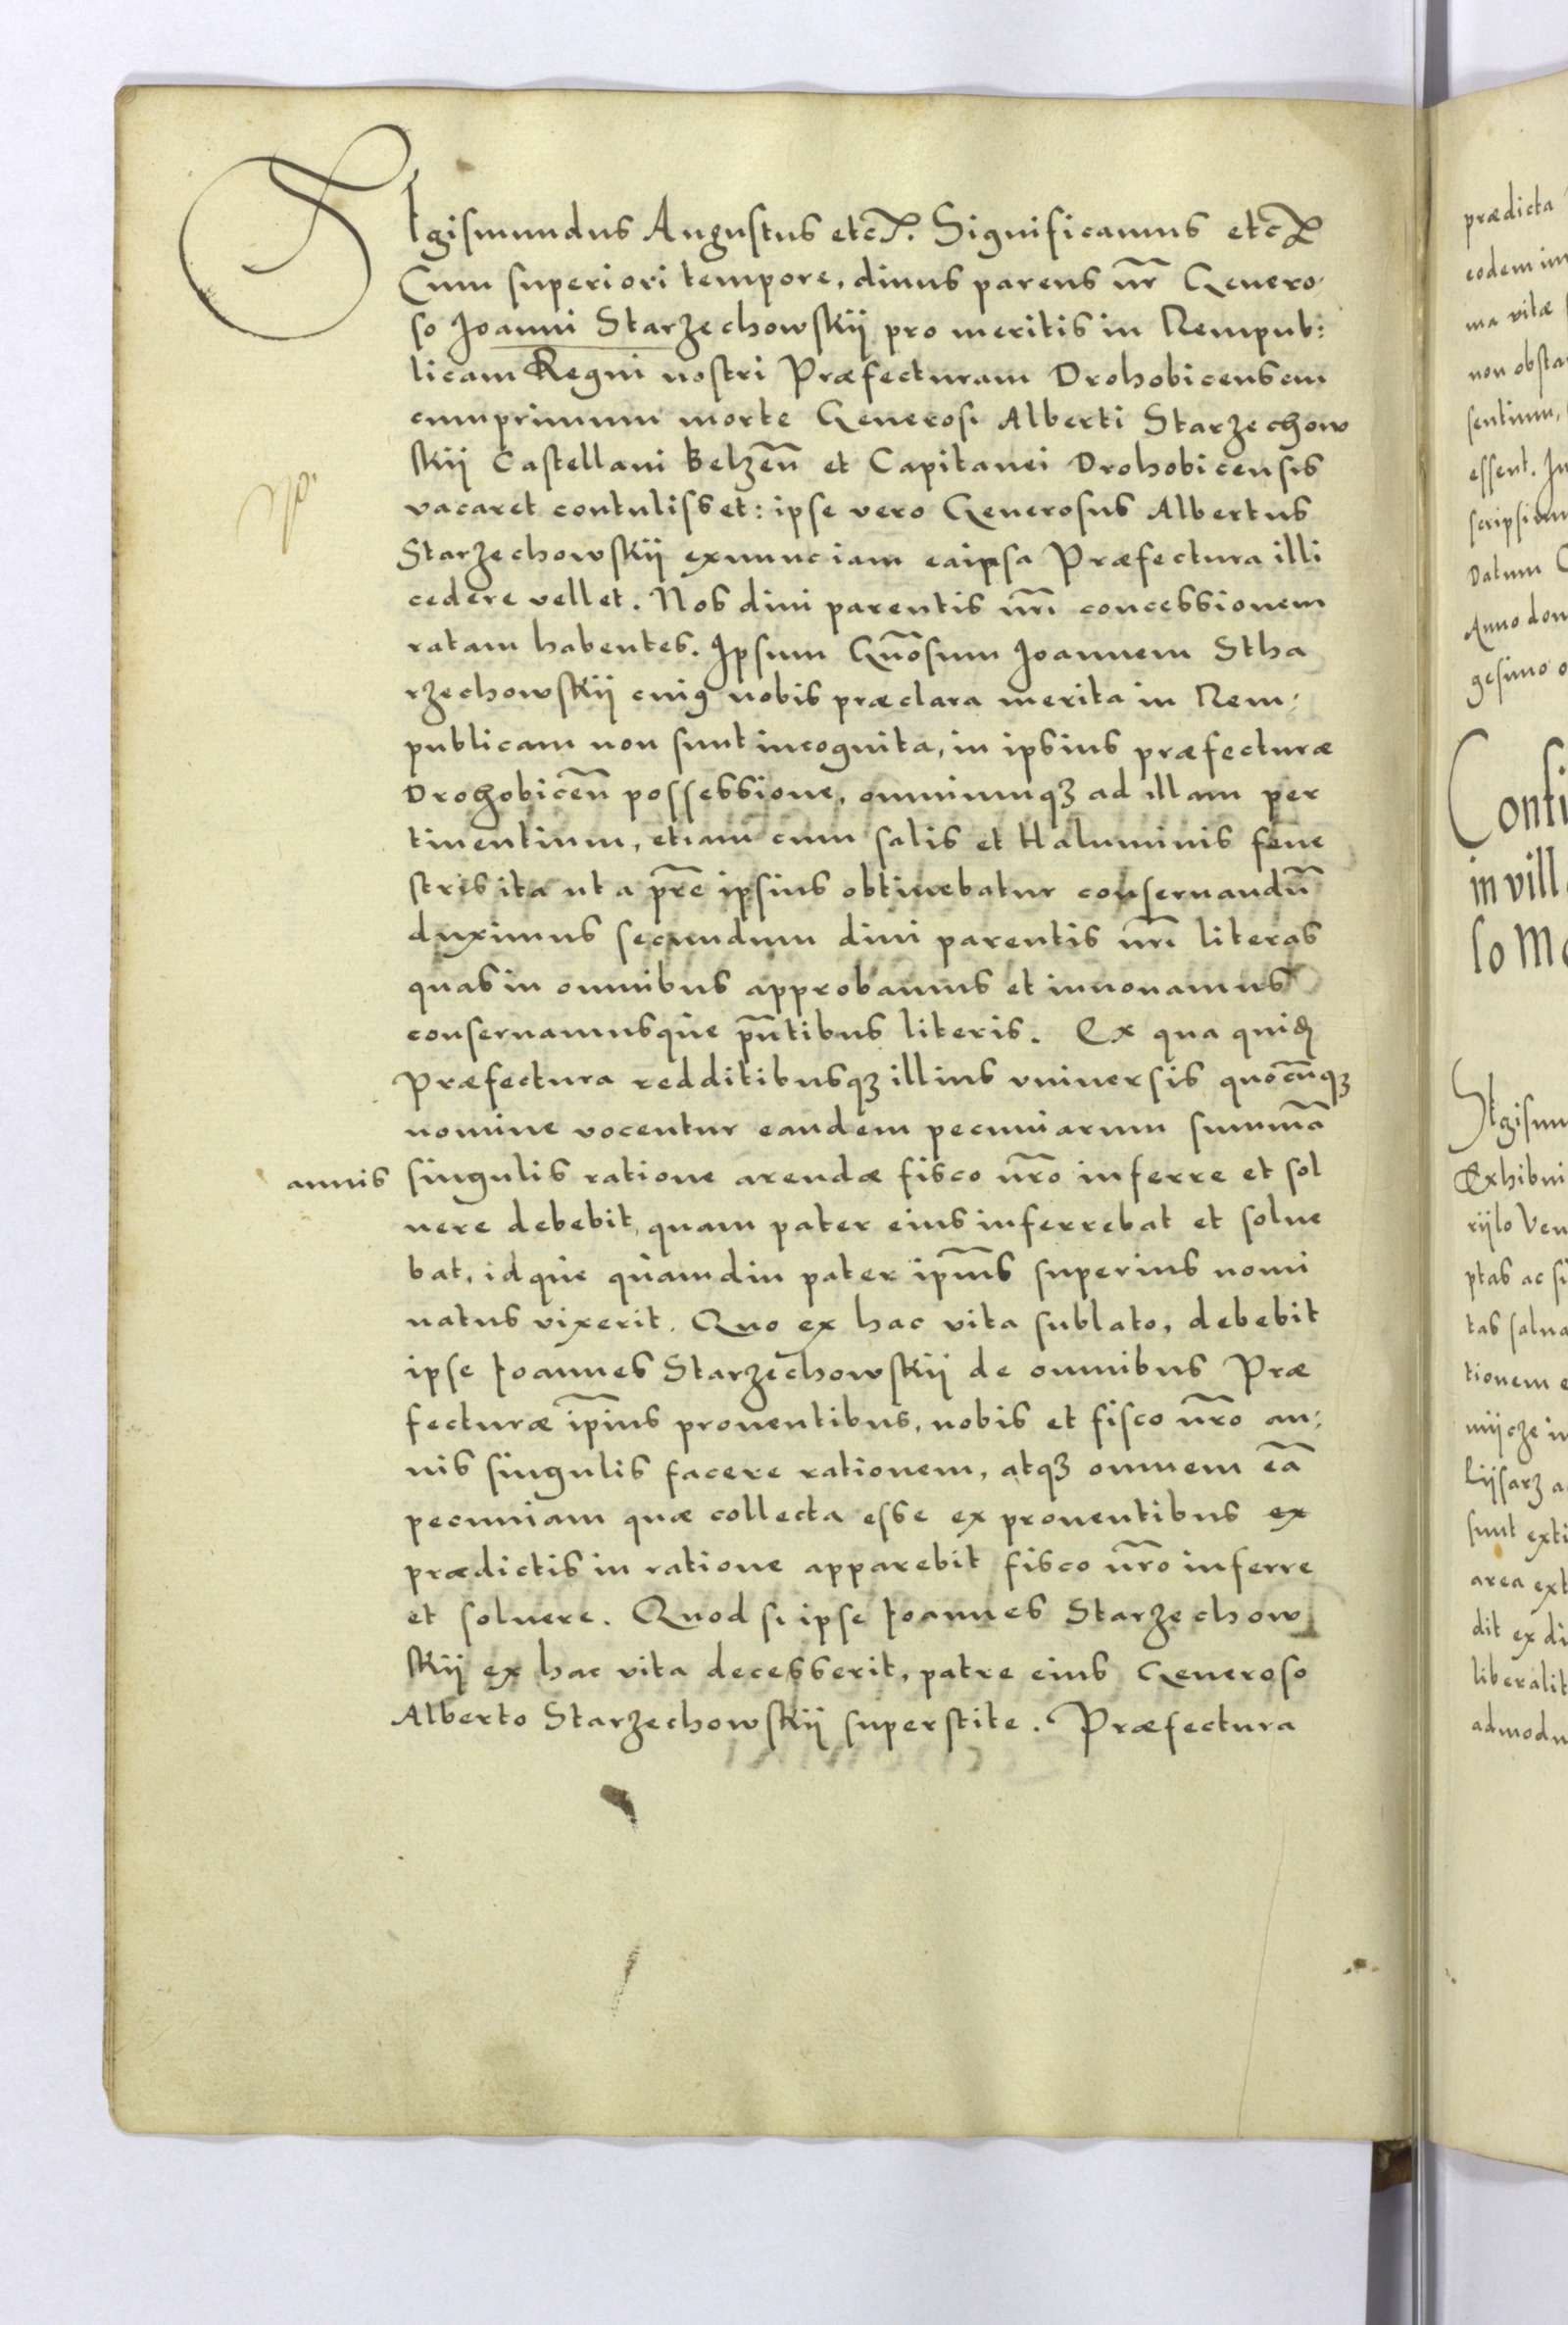 SIgismundus Augustus etcꝫ. Significamus etcꝫ
Cum superiori tempore, diuus parens nr̃ Genero-
so Joanni Starzechowskij pro meritis in Rempub:
licam Regni nostri Præfecturam Drohobicensem
cumprimum morte Generosi Alberti Starzechow
skij Castellani Belzen̄ et Capitanei Drohobicensis
vacaret contulisset: ipse vero Generosus Albertus
Starzechowskij exnunc iam eaipsa Præfectura illi
cedere vellet. Nos diui parentis nr̃i concessionem
ratam habentes. Ipsum Gn̄osum Joannem Stha
rzechowskij cuiꝯ nobis præclara merita in Rem-
publicam non sunt incognita, in ipsius præfecturæ
Drohobicen̄ possessione, omniumqꝫ ad illam per
tinentium, etiam cum salis et Haluminis fene
stris ita ut a pr̃e ipsius obtinebatur conseruandū
duximus secundum diui parentis nr̃i literas
quas in omnibus approbamus et innouamus
conseruamusque pn̄tibus literis. Ex qua quidꝫ
Præfectura redditibusqꝫ illius vniuersis quocūqꝫ
nomine vocentur eandem pecuniarum summā
annis singulis ratione arendæ fisco nr̃o inferre et sol
uere debebit, quam pater eius inferrebat et solue
bat, idque quamdiu pater ipm̄s superius nomi
natus vixerit. Quo ex hac vita sublato, debebit
ipse Joannes Starzechowskij de omnibus Præ
fecturæ ip̄ius prouentibus, nobis et fisco nr̃o an-
nis singulis facere rationem, atqꝫ omnem eā
pecuniam quæ collecta esse ex prouentibus ex
prædictis in ratione apparebit fisco nr̃o inferre
et soluere. Quod si ipse Joannes Starzechow
skij ex hac vita decesserit, patre eius Generoso
Alberto Starzechowskij superstite. Præfectura
prædicta
eodem
ma vitæ
non obsta
sentium,
essent. In
scripsim
Datum
Anno dom
gesimo o
Confi
in vill
lo Mo
SIgism
Exhibui
rijlo Ven
ptas ac si
tas salua
tionem e
mijcze in
Lijsarz a
sunt exti
area ext
dit ex di
liberalit
admodu